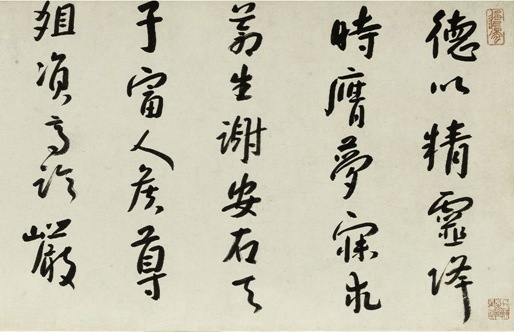 德以精靈降
時膺夢寐求
蒼生謝安石天
子富人侯尊
俎須高論巖